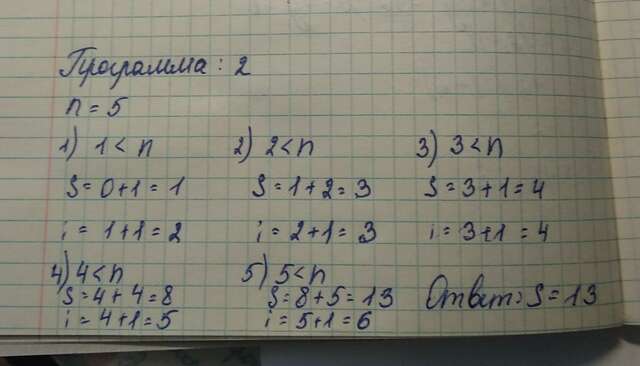 Программа: 2
n = 5
1) 1 < n
S = 0+1 = 1
i = 1+1 = 2
2) 2 < n
S = 1+2 = 3
i = 2+1 = 3
3) 3 < n
S = 3+1 = 4
i = 3+1 = 4
4) 4 < n
S = 4+4 = 8
i = 4+1 = 5
5) 5 < n
S = 8+5 = 13
i = 5+1 = 6
Ответ: S = 13